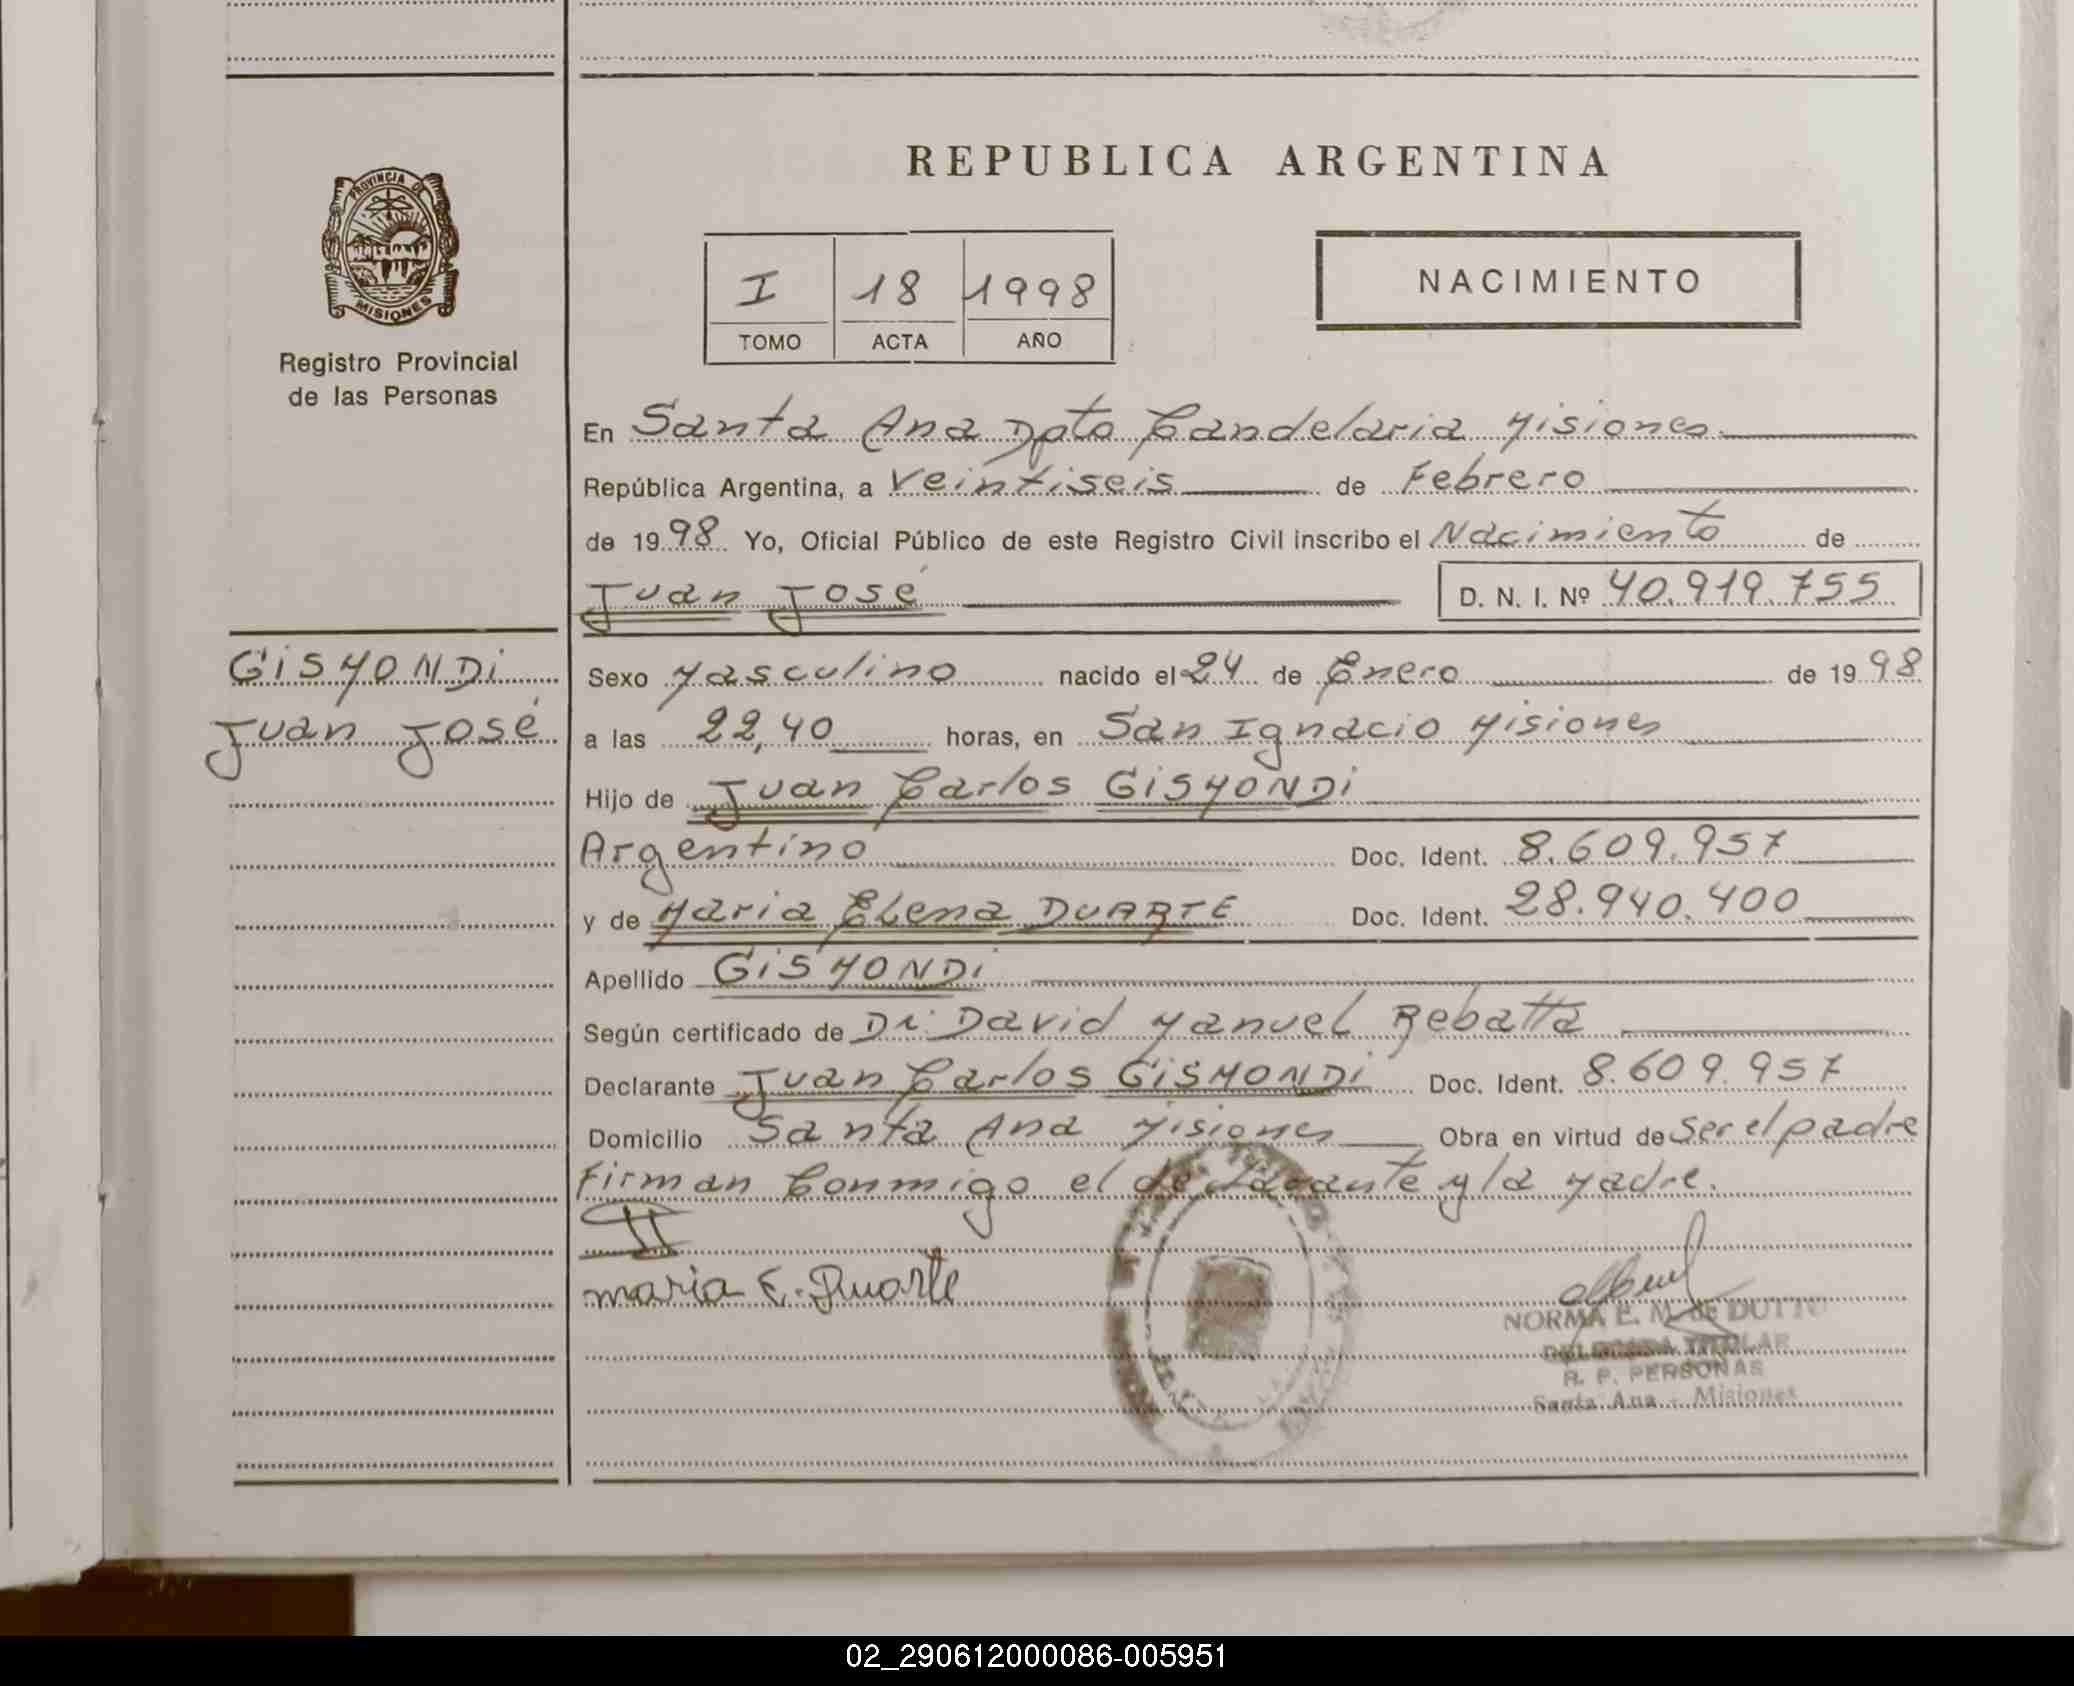 REPUBLICA ARGENTINA
PROVINCIA DE
MISIONES
Registro Provincial
de las Personas
I 18 1998
TOMO ACTA AÑO
NACIMIENTO
En Santa Ana Dpto Candelaria Misiones
República Argentina, a Veintiseis de Febrero
de 1998 Yo, Oficial Público de este Registro Civil inscribo el Nacimiento de
Juan José D. N. I. Nº 40.919.755
GISMONDI
Juan José
Sexo Masculino nacido el 24 de Enero de 1998
a las 22,40 horas, en San Ignacio Misiones
Hijo de Juan Carlos GISMONDI
Argentino Doc. Ident. 8.609.957
y de Maria Elena DUARTE Doc. Ident. 28.940.400
Apellido GISMONDI
Según certificado de Dr. David Manuel Rebatta
Declarante Juan Carlos GISMONDI Doc. Ident. 8.609.957
Domicilio Santa Ana Misiones Obra en virtud de Ser el padre
Firman Conmigo el declarante y la Madre.
maria E. Duarte
NORMA E. M. de DUTTO
DELEGADA TITULAR
R. P. PERSONAS
Santa Ana - Misiones
02_290612000086-005951